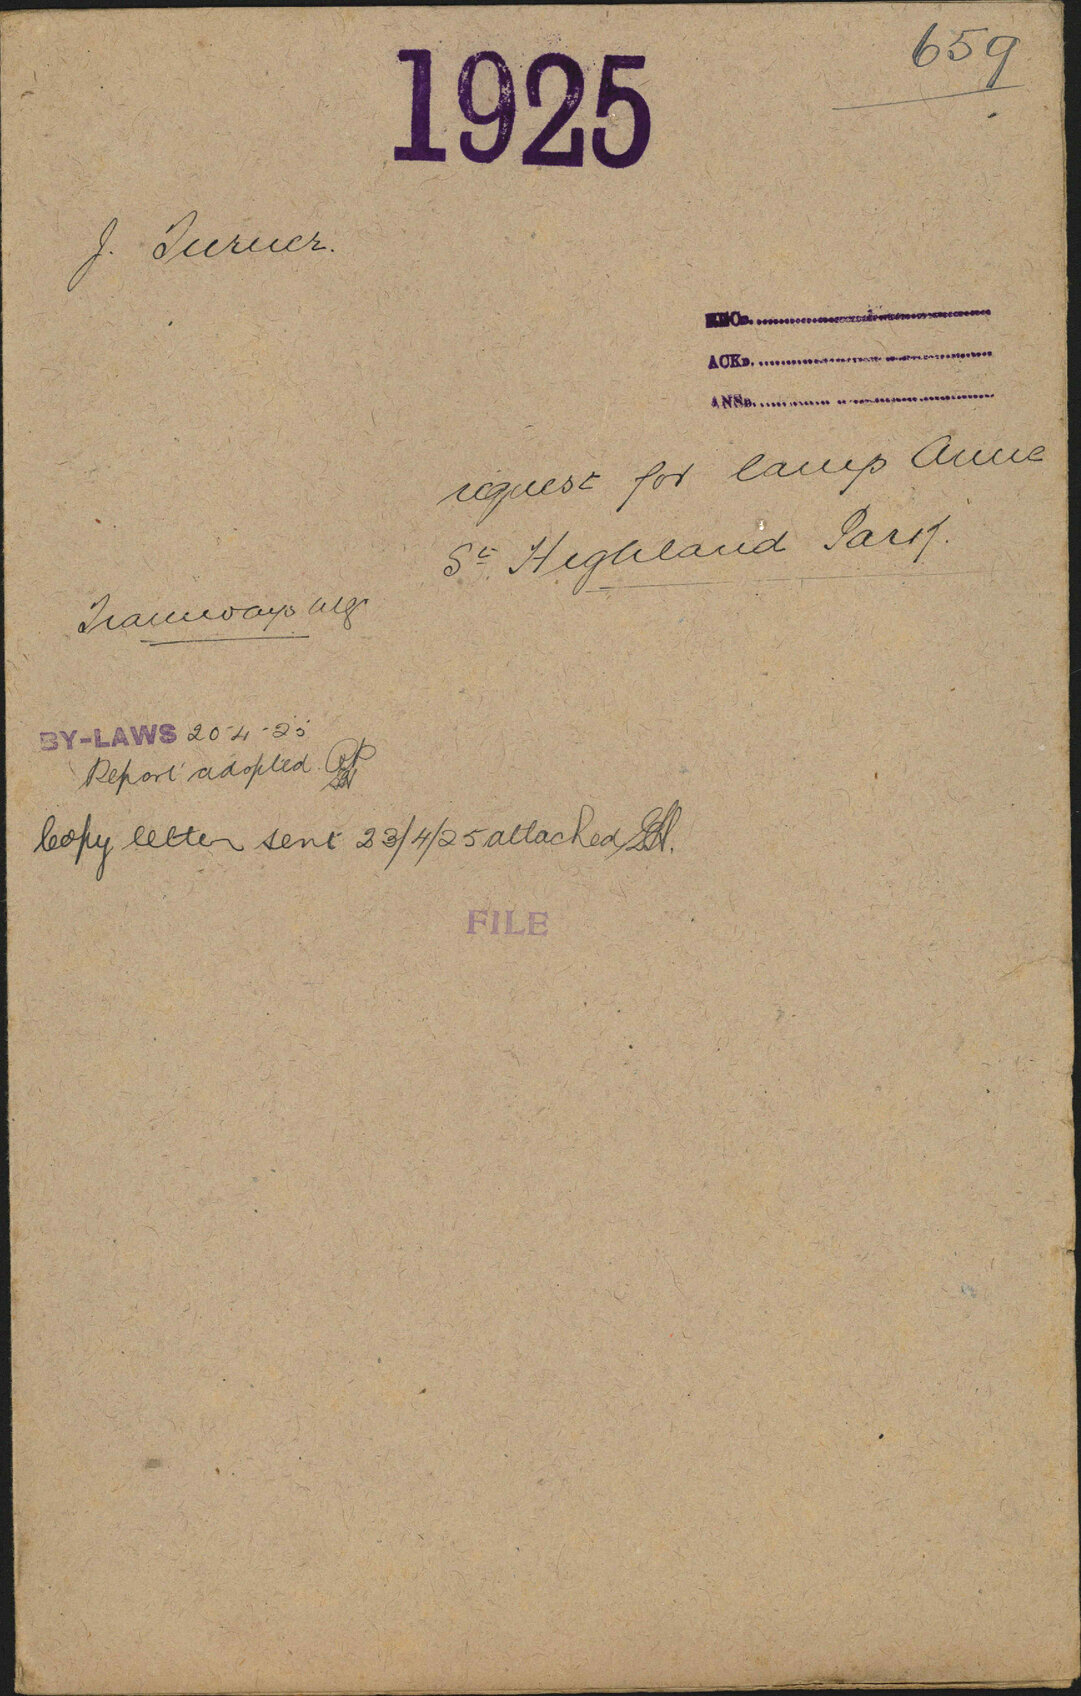 659
1925
J. Turner.
RECD.
ACKD.
ANSD.
request for lamp Anne
St Highland Park.
Tramways Mgr
BY-LAWS 20-4-25
Report adopted
Copy letter sent 23/4/25 attached
FILE